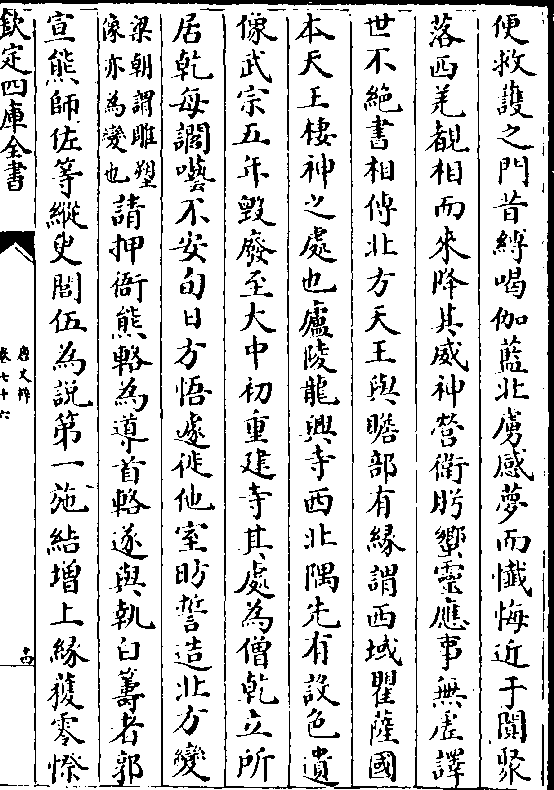 便救護之門昔縛喝伽藍北虜感夢而懺悔近于闐聚
落西羌覩相而來降其威神營衛肸蠁靈應事無虛譯
世不絶書相傳北方天王與贍部有緣謂西域瞿薩國
本天王棲神之處也廬陵龍興寺西北隅先有設色遺
像武宗五年毀廢至大中初重建寺其處為僧乾立所
居乾每譋囈不安旬日方悟遽徙他室昉誓造北方變
梁朝謂雕塑
像亦為變也
請押衙熊輅為導首輅遂與執白籌者郭
宣熊師佐等縱㬰閭伍為説第一施結增上緣獲零幣
欽定四庫全書
唐文粹
卷七十六
十四